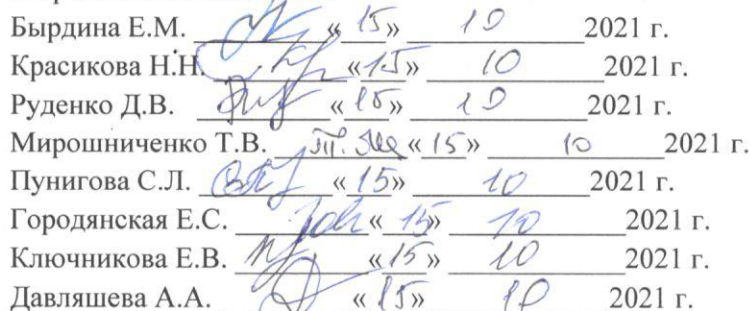 Бырдина Е.М. «15» 10 2021 г.
Красикова Н.Н. «15» 10 2021 г.
Руденко Д.В. «15» 10 2021 г.
Мирошниченко Т.В. «15» 10 2021 г.
Пунигова С.Л. «15» 10 2021 г.
Городянская Е.С. «15» 10 2021 г.
Ключникова Е.В. «15» 10 2021 г.
Давляшева А.А. «15» 10 2021 г.